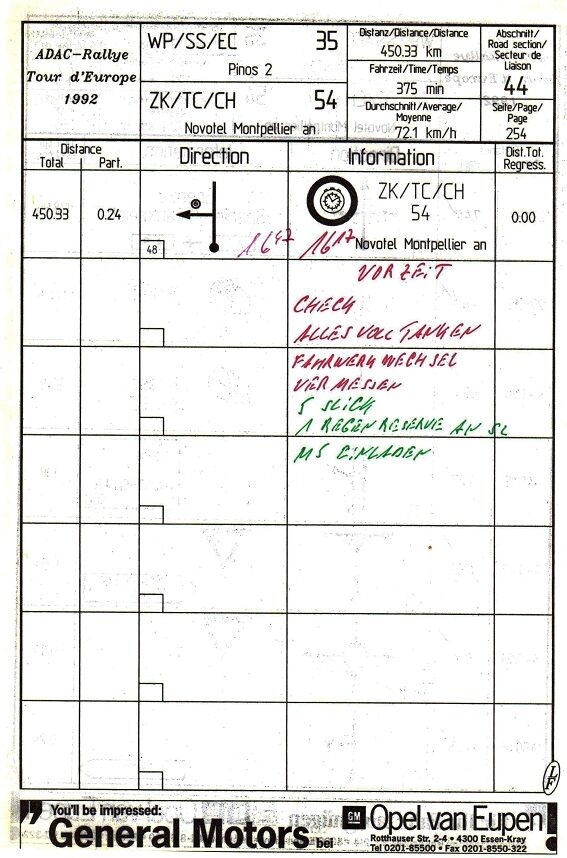 ADAC-Rallye
Tour d'Europe
1992
WP/SS/EC 35
Pinos 2
ZK/TC/CH 54
Novotel Montpellier an
Distanz/Distance/Distance
450.33 km
Fahrzeit/Time/Temps
375 min
Durchschnitt/Average/
Moyenne
72.1 km/h
Abschnitt/
Road section/
Secteur de
Liaison
44
Seite/Page/
Page
254
Distance
Total Part.
Direction
Information
Dist.Tot.
Regress.
450.33 0.24
48
16 47
16 17
ZK/TC/CH
54
Novotel Montpellier an
0:00
VORZEIT
CHECK
ALLES VOLL TANKEN
FAHRWERK WECHSEL
VERMESSEN
5 SLICK
1 REGEN RESERVE AN SL
MS EINLADEN
I/F
You'll be impressed:
General Motors bei
GM Opel van Eupen!
Rotthauser Str. 2-4 • 4300 Essen-Kray
Tel 0201-85500 • Fax 0201-8550-322